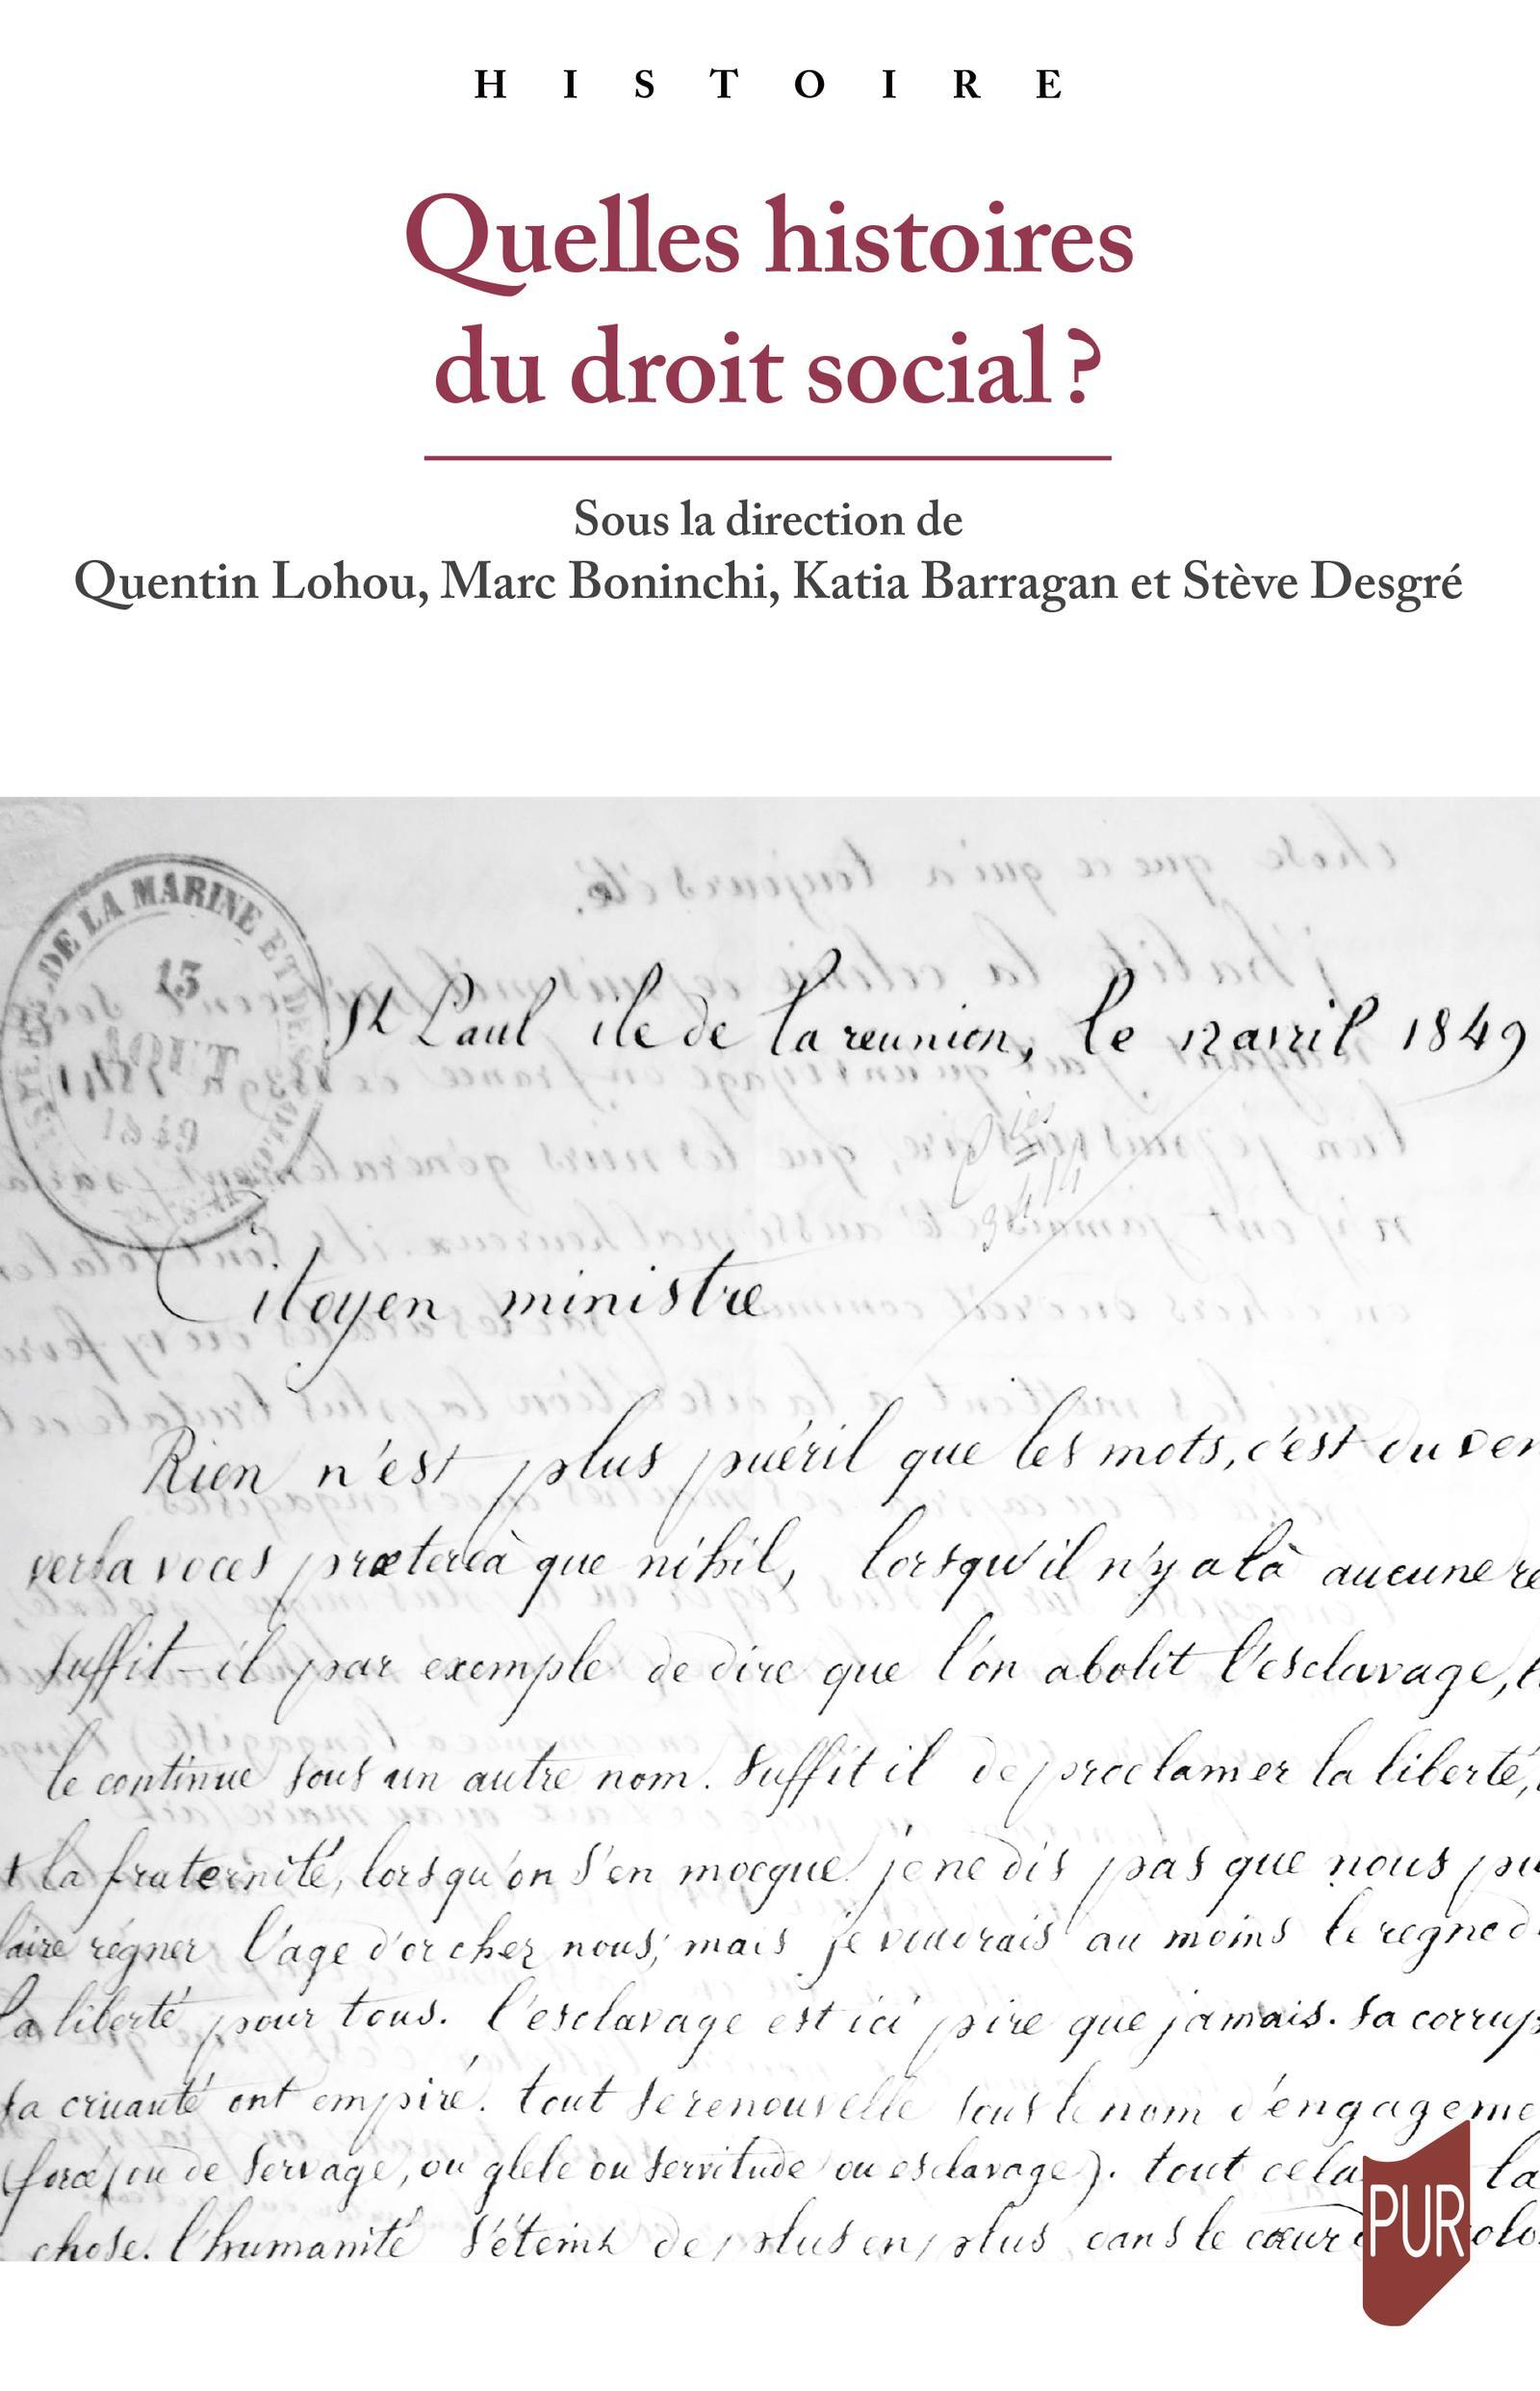 HISTOIRE
Quelles histoires
du droit social ?
Sous la direction de
Quentin Lohou, Marc Boninchi, Katia Barragan et Stève Desgré
DE LA MARINE ET DES
13
AOUT
1849
St Paul ile de la reunion, le 12 avril 1849
Citoyen ministre
Rien n'est plus puéril que les mots, c'est du
verba voces prætereà que nihil, lorsqu'il n'y a là aucune
suffit-il par exemple de dire que l'on abolit l'esclavage,
le continue sous un autre nom. suffit il de proclamer la liberté,
la fraternité, lorsqu'on s'en mocque. je ne dis pas que nous
faire régner l'age d'or chez nous; mais je voudrais au moins le regne
la liberté pour tous. l'esclavage est ici pire que jamais. sa
sa cruauté ont empiré. tout se renouvelle sous le nom
(forcé) ou de servage, ou glebe ou servitude ou esclavage). tout cela la
chose. l'humanité s'éteint de plus en plus dans le cœur
PUR